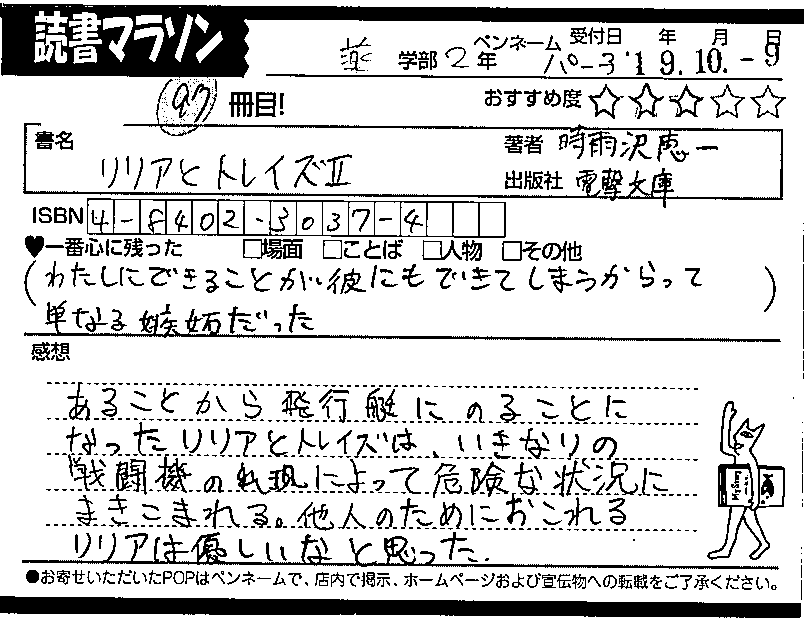 読書マラソン
薬 学部 2年 ペンネーム パーる 受付日 '19.10.-9 年 月 日
97 冊目! おすすめ度 ☆☆☆☆☆
書名 リリアとトレイズⅡ
著者 時雨沢恵一
出版社 電撃文庫
ISBN 4-8402-3037-4
♥一番心に残った □場面 □ことば □人物 □その他
(わたしにできることが彼にもできてしまうからって
単なる嫉妬だった)
感想
あることから飛行艇にのることに
なったリリアとトレイズは、いきなりの
戦闘機の出現によって危険な状況に
まきこまれる。他人のためにおこれる
リリアは優しいなと思った.
●お寄せいただいたPOPはペンネームで、店内で掲示、ホームページおよび宣伝物への転載をご了承ください。